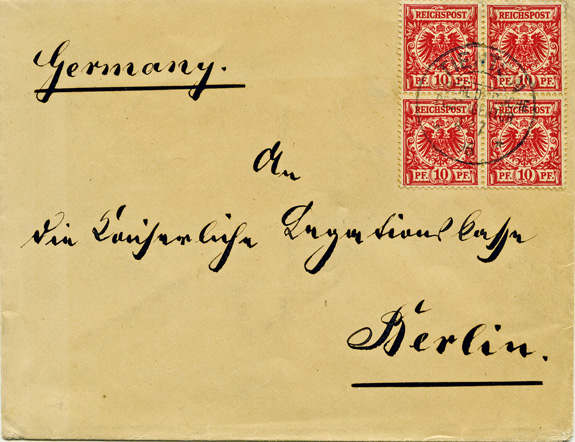 REICHSPOST REICHSPOST
10 PF. 10 PF.
REICHSPOST REICHSPOST
PF. 10 PF. PF. 10 PF.
Germany.
An
die Kaiserliche Legationskasse
Berlin.